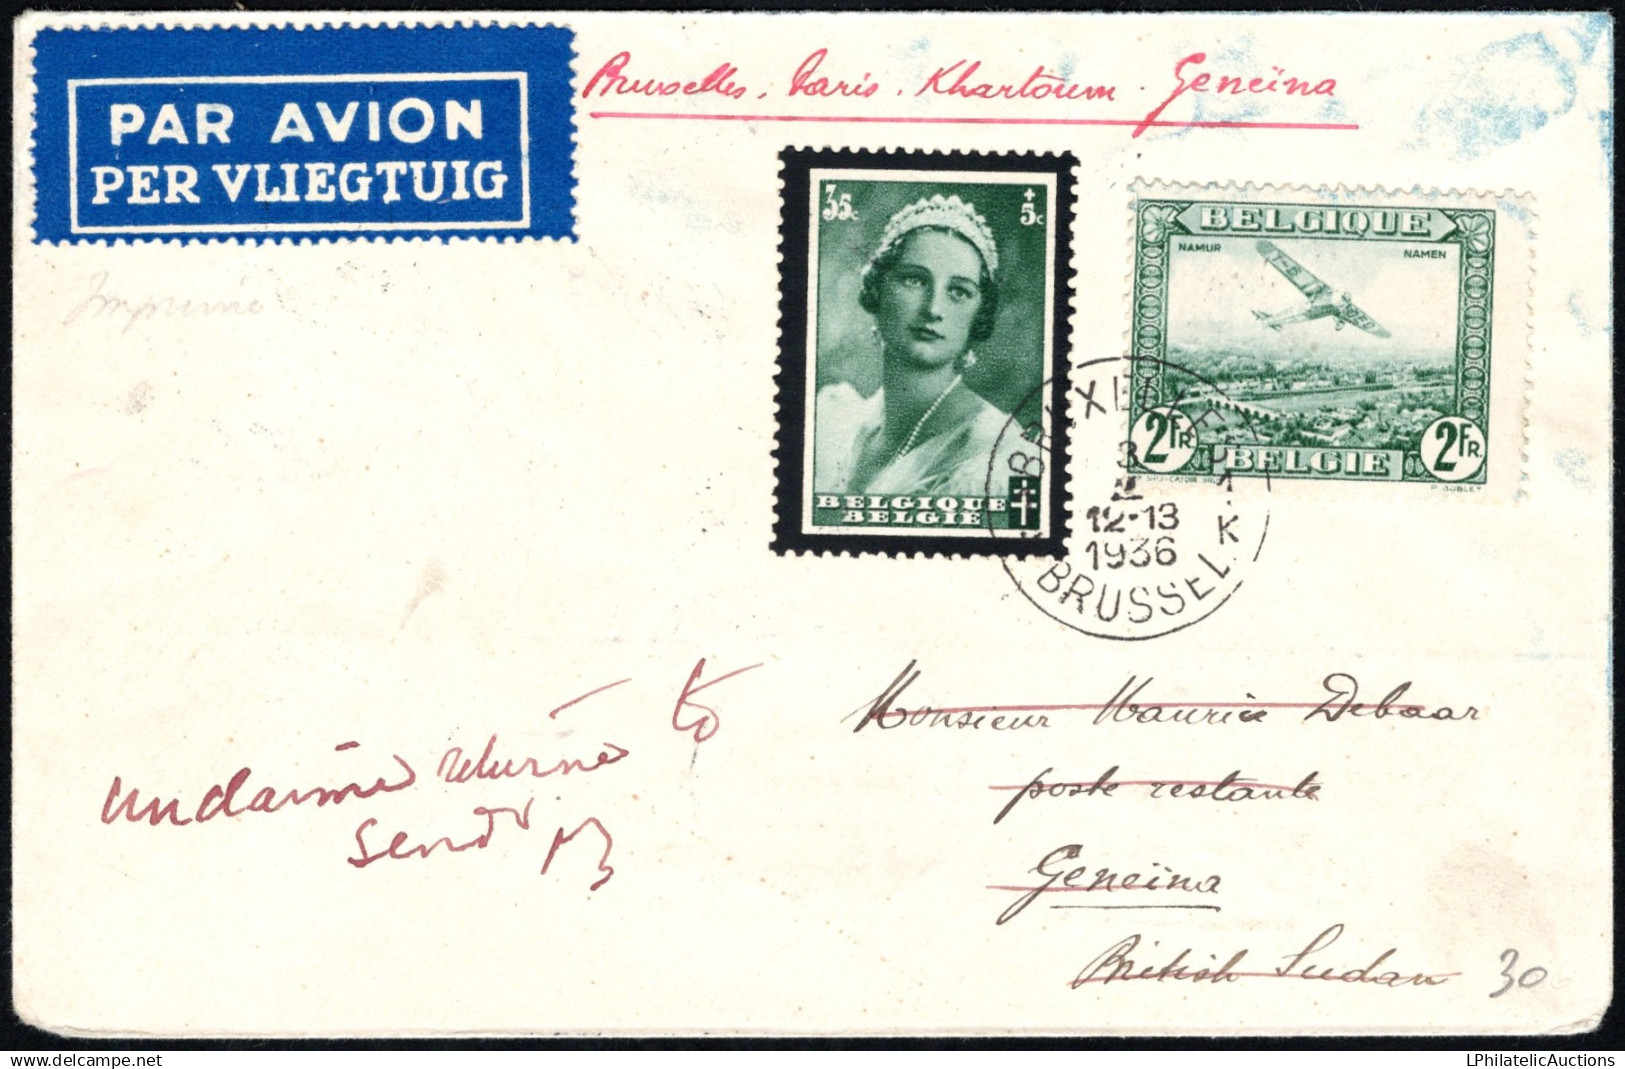 PAR AVION
PER VLIEGTUIG
Bruxelles. Paris. Khartoum. Geneïna
Imprimé
35c
+5c
BELGIQUE
BELGIË
BELGIQUE
NAMUR
NAMEN
2FR.
BELGIË
2FR.
BRUXELLES
3
12-13
1936
K
BRUSSEL
to
returne
send
Monsieur Maurice Debaar
poste restante
Geneïna
British Sudan
30
delcampe.net
LPhilatelicAuctions